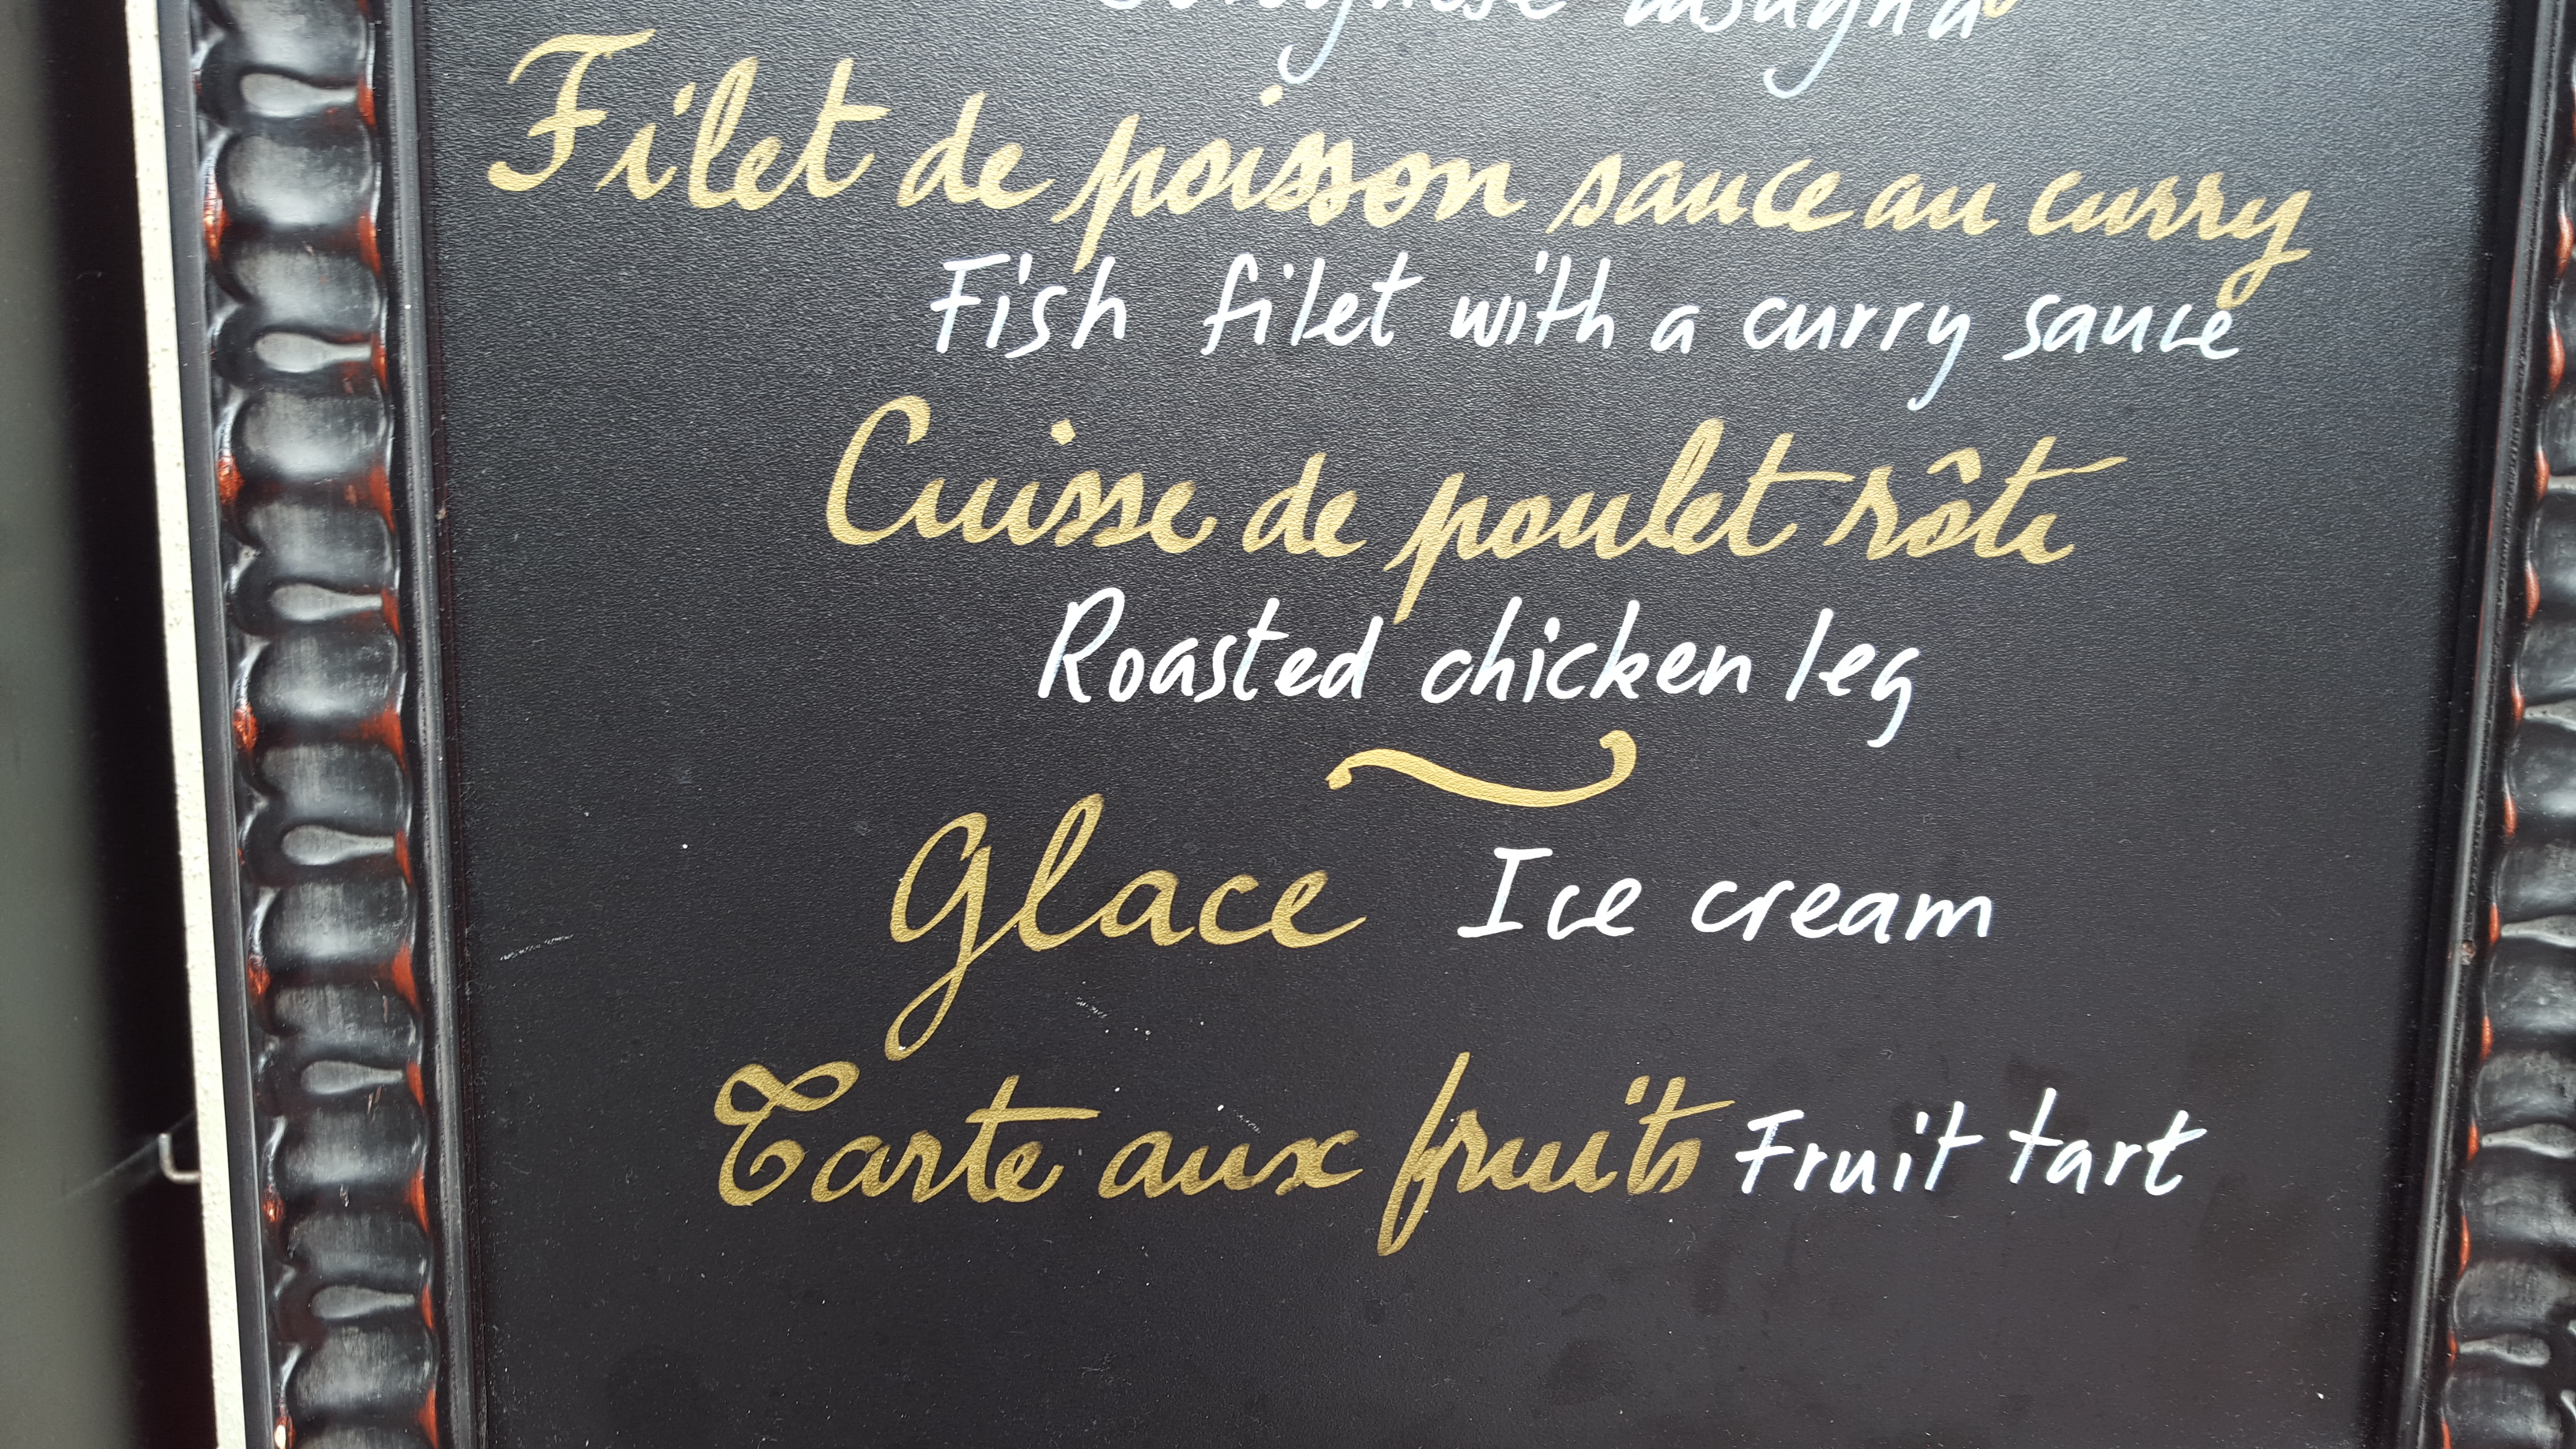 Bolognese lasagna
Filet de poisson sauce au curry
Fish filet with a curry sauce
Cuisse de poulet rôti
Roasted chicken leg
Glace Ice cream
Tarte aux fruits Fruit tart